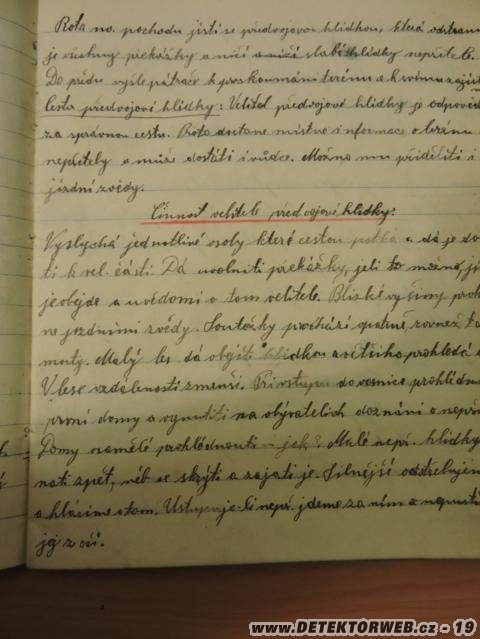 Rota na pochodu jistí se předvojovou hlídkou, která odstraní
je všechny překážky a ničí a ničí slabší hlídky nepřítele.
Do předu vyšle pátrače k proskoumání terénu a k svému zajiš
Cesta předvojové hlídky: Velitel předvojové hlídky je odpověd
za správnou cestu. Rota dostane místní informace o terénu
nepřítely a může dostati i vůdce. Možno mu přiděliti i
jízdní zvědy.
Činnost velitele předvojové hlídky:
Vyslychá jednotlivé osoby které cestou potká a dá je do
ti k vel. části. Dá uvolniti překážky, jeli to možno, ji
je objede a uvědomí o tom velitele. Blízké vyšiny proh
ne jezdními zvědy. Soutězky prochází opatrně, rovněž
muty. Malý les dá objeti hlídkou a většího prohledá
V lese vzdálenosti zmenší. Při vstupu do vesnice prohlédne
první domy a vynutiti na obyvatelích doznání o nepří
Domy osamělé prohlédnouti - jak? Malé nepř. hlídky
nati zpět, neb se skrýti a zajati je. Silnější odstřelujem
a hlásíme o tom. Ustupuje-li nepř. jdeme za ním a nepustí
jej z očí.
www.DETEKTORWEB.cz - 19